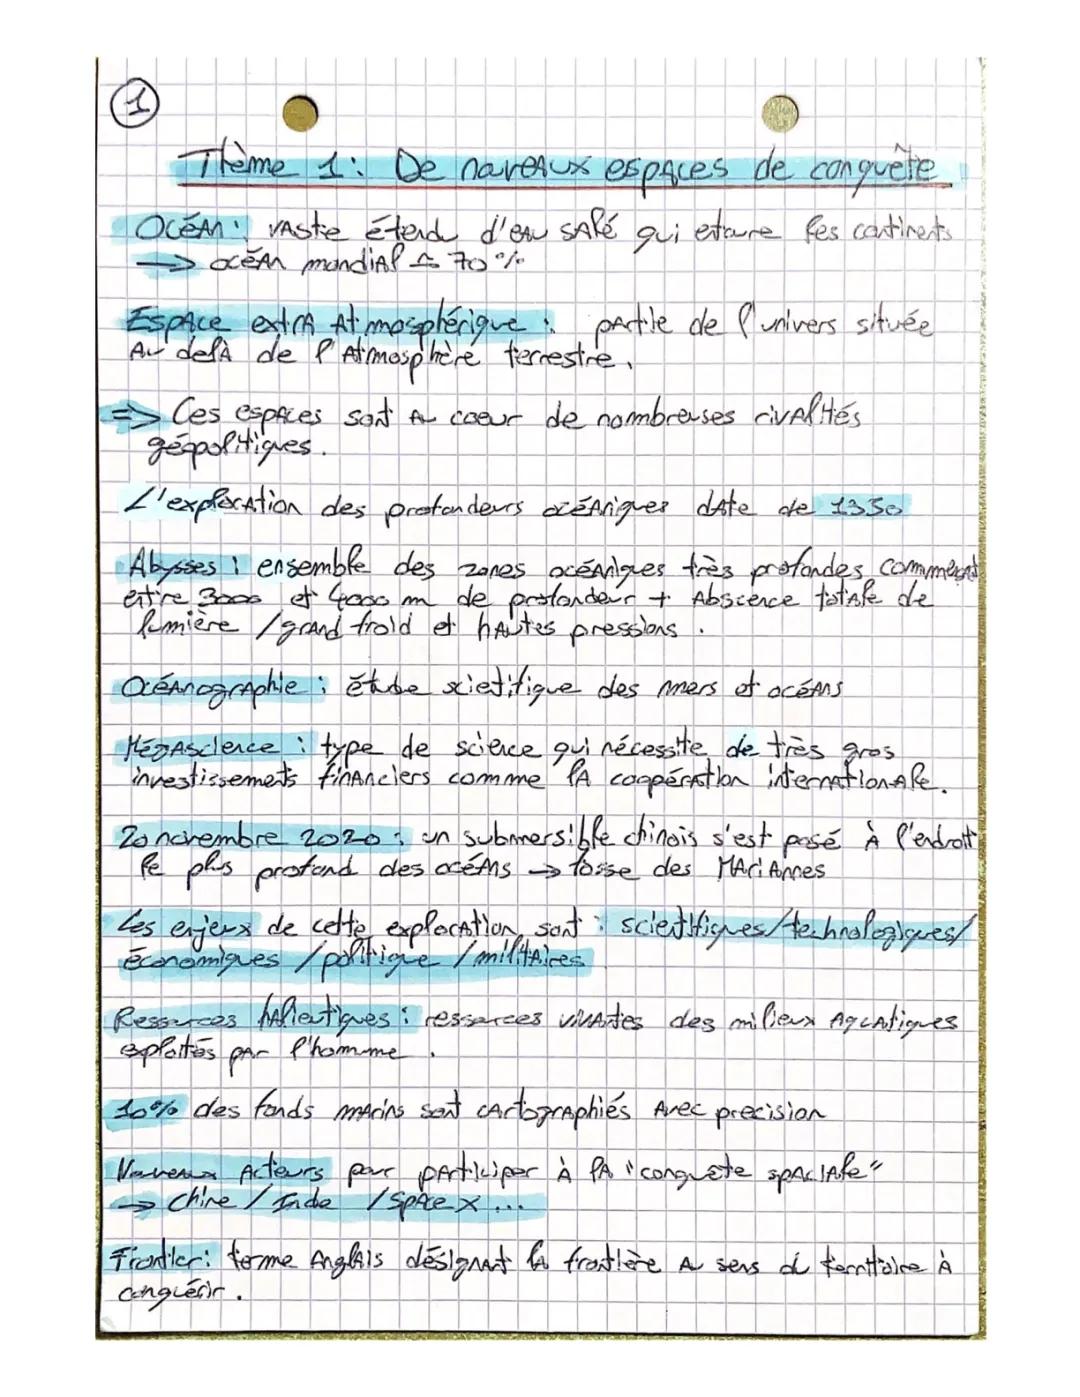 1
Thème 1: De nouveaux espaces de conquête
Océan : vaste étend d'eau salé qui entoure les continents
→ océan mondial ≃ 70%
Espace extra Atmosphérique : partie de l'univers située
Au delà de l'Atmosphère terrestre.
=> Ces espaces sont Au coeur de nombreuses rivalités
géopolitiques.
L'exploration des profondeurs océaniques date de 1350
Abysses : ensemble des zones océaniques très profondes commençant
entre 3000 et 4000 m de profondeur + Abscence totale de
lumière / grand froid et hautes pressions.
Océanographie : étude scietifique des mers et océans
Mégascience : type de science qui nécessite de très gros
investissements financiers comme la coopération internationale.
20 novembre 2020 : un submersible chinois s'est posé à l'endroit
le plus profond des océans → fosse des Mariannes
Les enjeux de cette exploration sont : scientifiques/technologiques/
économiques / politique / militaires
Ressources halieutiques : ressources vivantes des milieux Aquatiques
exploités par l'homme.
10% des fonds marins sont cartographiés Avec precision
Nouveaux Acteurs pour participer à la "conquête spaciale"
→ Chine / Inde / Space x ...
Frontier : terme Anglais désignant la frontière Au sens du territoire à
conquérir.